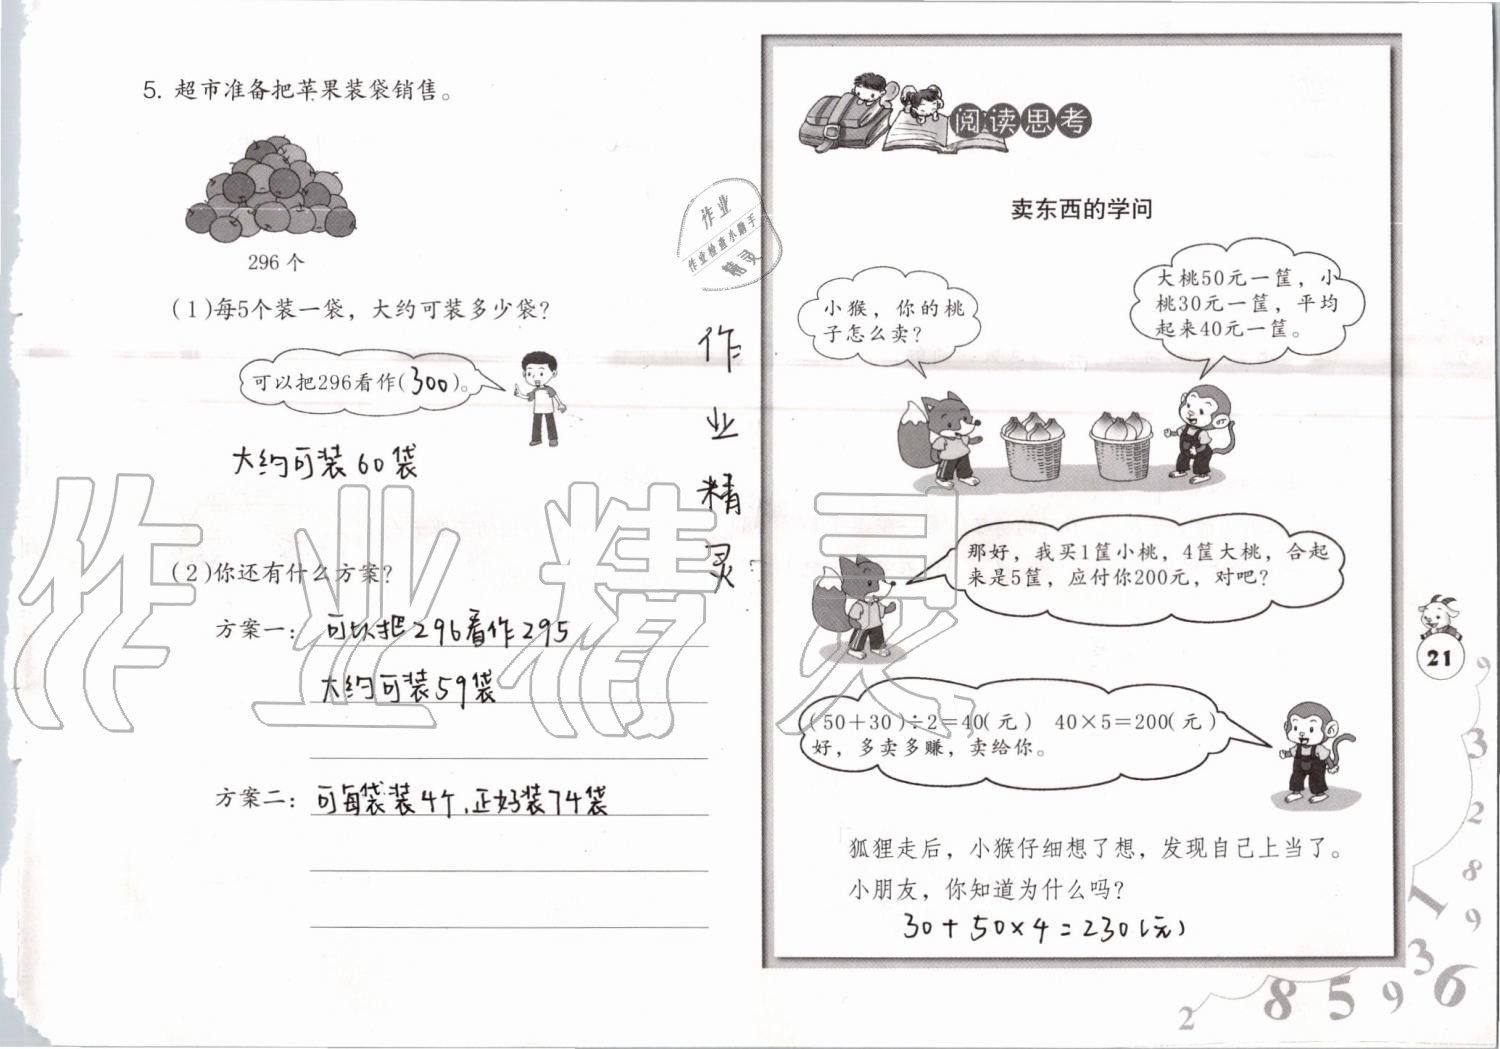 5. 超市准备把苹果装袋销售。
296 个
(1)每5个装一袋，大约可装多少袋？
可以把296看作(300)。
大约可装60袋
(2)你还有什么方案？
方案一：可以把296看作295
大约可装59袋
方案二：可每袋装4个,正好装74袋
作业
作业检查小助手
精灵
作
业
精
灵
作业精灵
阅读思考
卖东西的学问
小猴，你的桃
子怎么卖？
大桃50元一筐，小
桃30元一筐，平均
起来40元一筐。
那好，我买1筐小桃，4筐大桃，合起
来是5筐，应付你200元，对吧？
(50＋30)÷2＝40(元)　40×5＝200(元)
好，多卖多赚，卖给你。
狐狸走后，小猴仔细想了想，发现自己上当了。
小朋友，你知道为什么吗？
30+50×4=230(元)
21
9
3
2
8
9
1
3
6
9
5
8
2